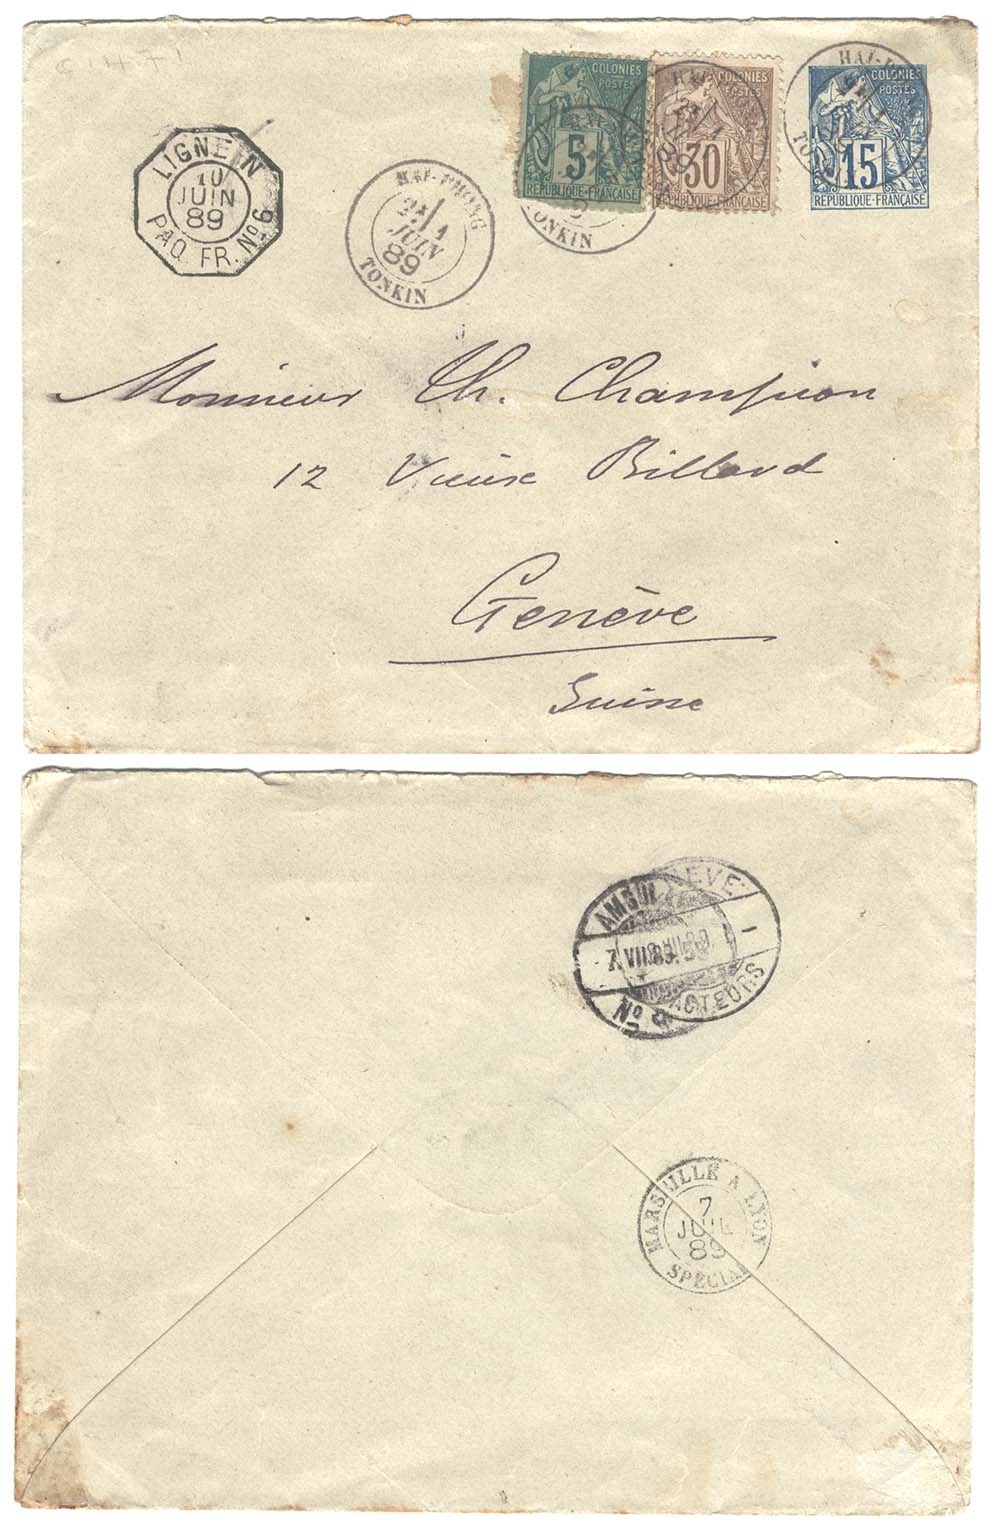 COLONIES
POSTES
5
REPUBLIQUE FRANÇAISE
COLONIES
POSTES
30
REPUBLIQUE FRANÇAISE
COLONIES
POSTES
15
REPUBLIQUE FRANÇAISE
LIGNE N
10
JUIN
89
PAQ. FR. Nº 6
HAI-PHONG
JUIN
89
TONKIN
TONKIN
89
Monsieur Th. Champion
12 Vieux Billard
Genève
Suisse
AMBUL
7. VII 89
Nº
EVE
ACTEURS
MARSEILLE A LYON
7
JUIL
89
SPECIAL